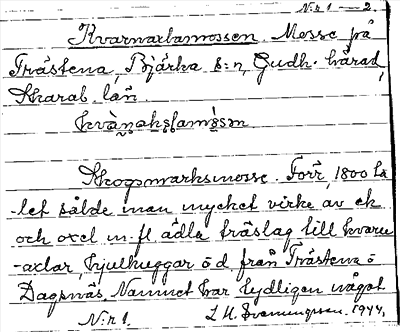 Nr 1 — 2.
Kvarnaxlamossen. Mosse på
Trästena, Bjärka s:n, Gudh. härad,
Skarab. län.
Skogsmarksmosse. Förr, 1800 ta
-let sålde man mycket virke av ek
och oxel m. fl. ädla träslag till kvarn
-axlar, hjulnuggar o d. från Trästena o
Dagsnäs. Namnet har tydligen något
Nr 1. L. M. Svenungsson. 1944.